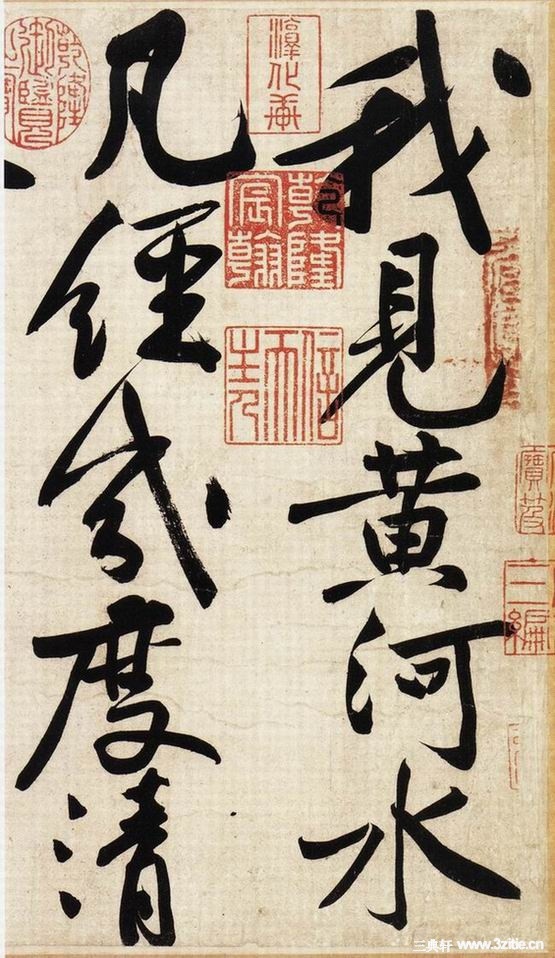 我見黄河水
凡經幾度清
淳化軒
乾隆宸翰
信天主人
乾隆御覽之寶
寶笈
三編
三典轩 www.3zitie.cn